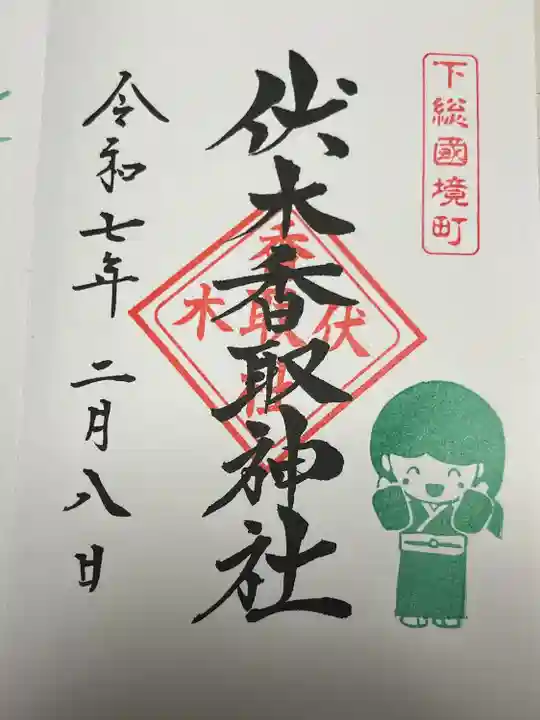 下総國境町
伏木香取神社
伏木
香取社
令和七年 二月八日